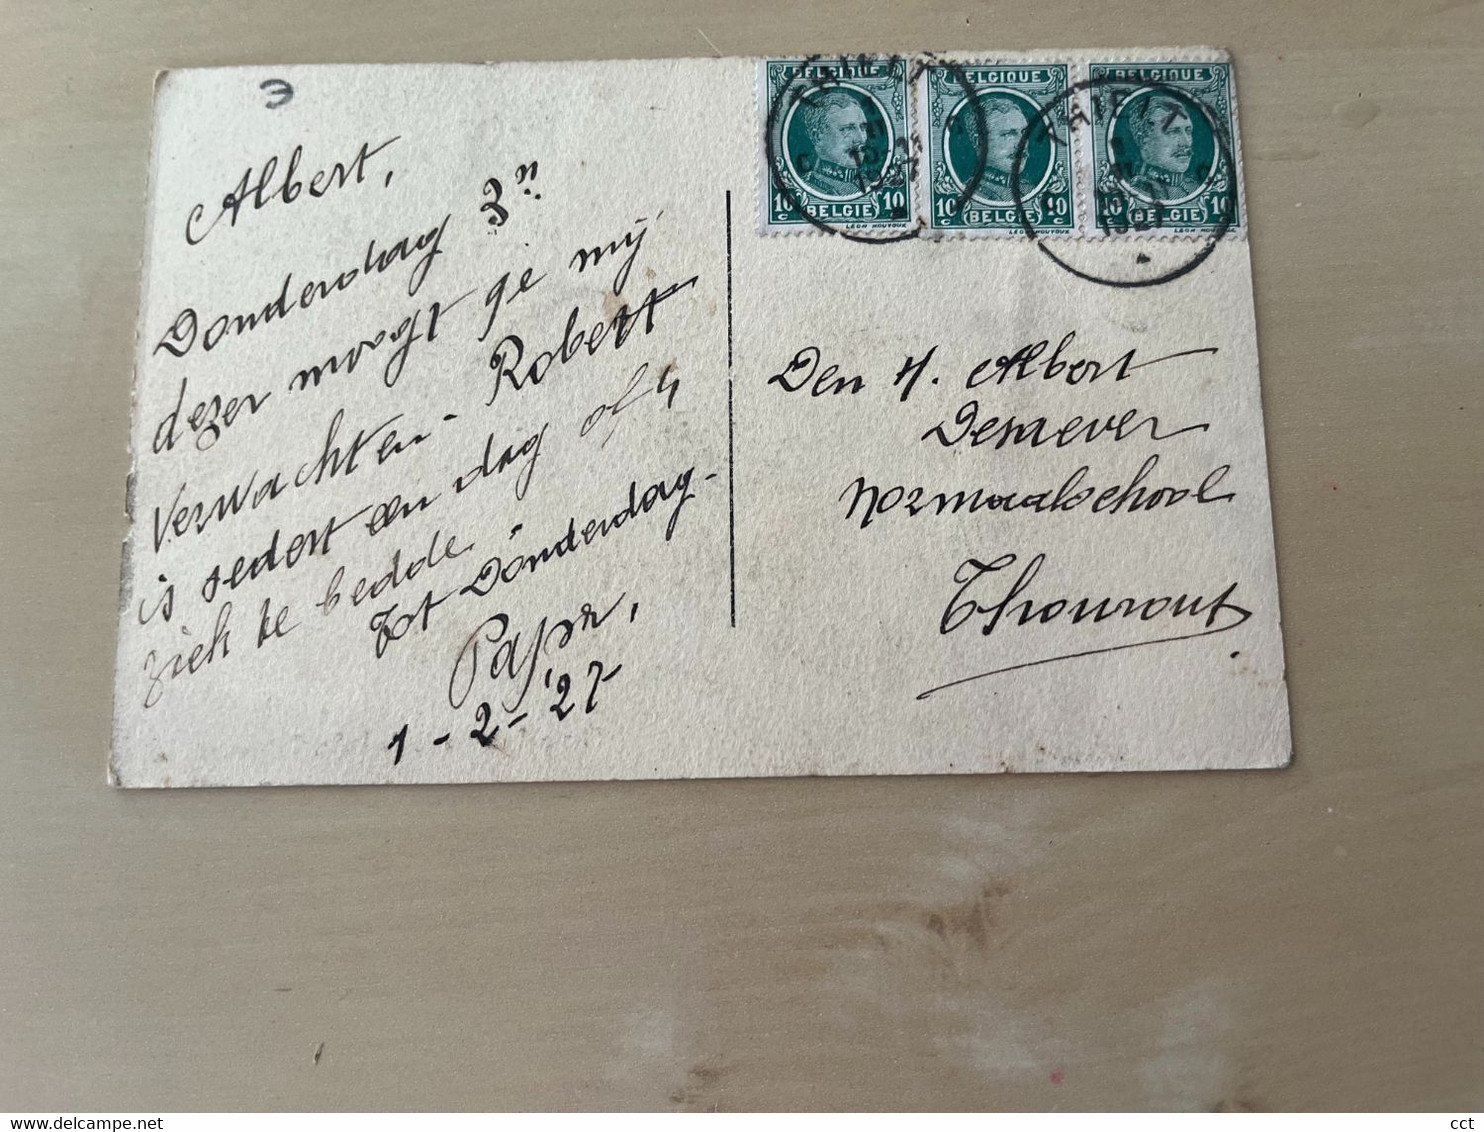 Albert,
Donderdag 3n
dezer moogt ge mij
verwachten - Robert
is sedert een dag of 4
ziek te bedde.
Tot Donderdag -
Papa,
1-2-'27
BELGIQUE
10c BELGIË 10c
LEON HOUYOUX
BELGIQUE
10c BELGIË 10c
LEON HOUYOUX
BELGIQUE
10c BELGIË 10c
LEON HOUYOUX
THIELT
1927
THIELT
Den H. Albert
Desaever
Normaalschool
Thourout
cct